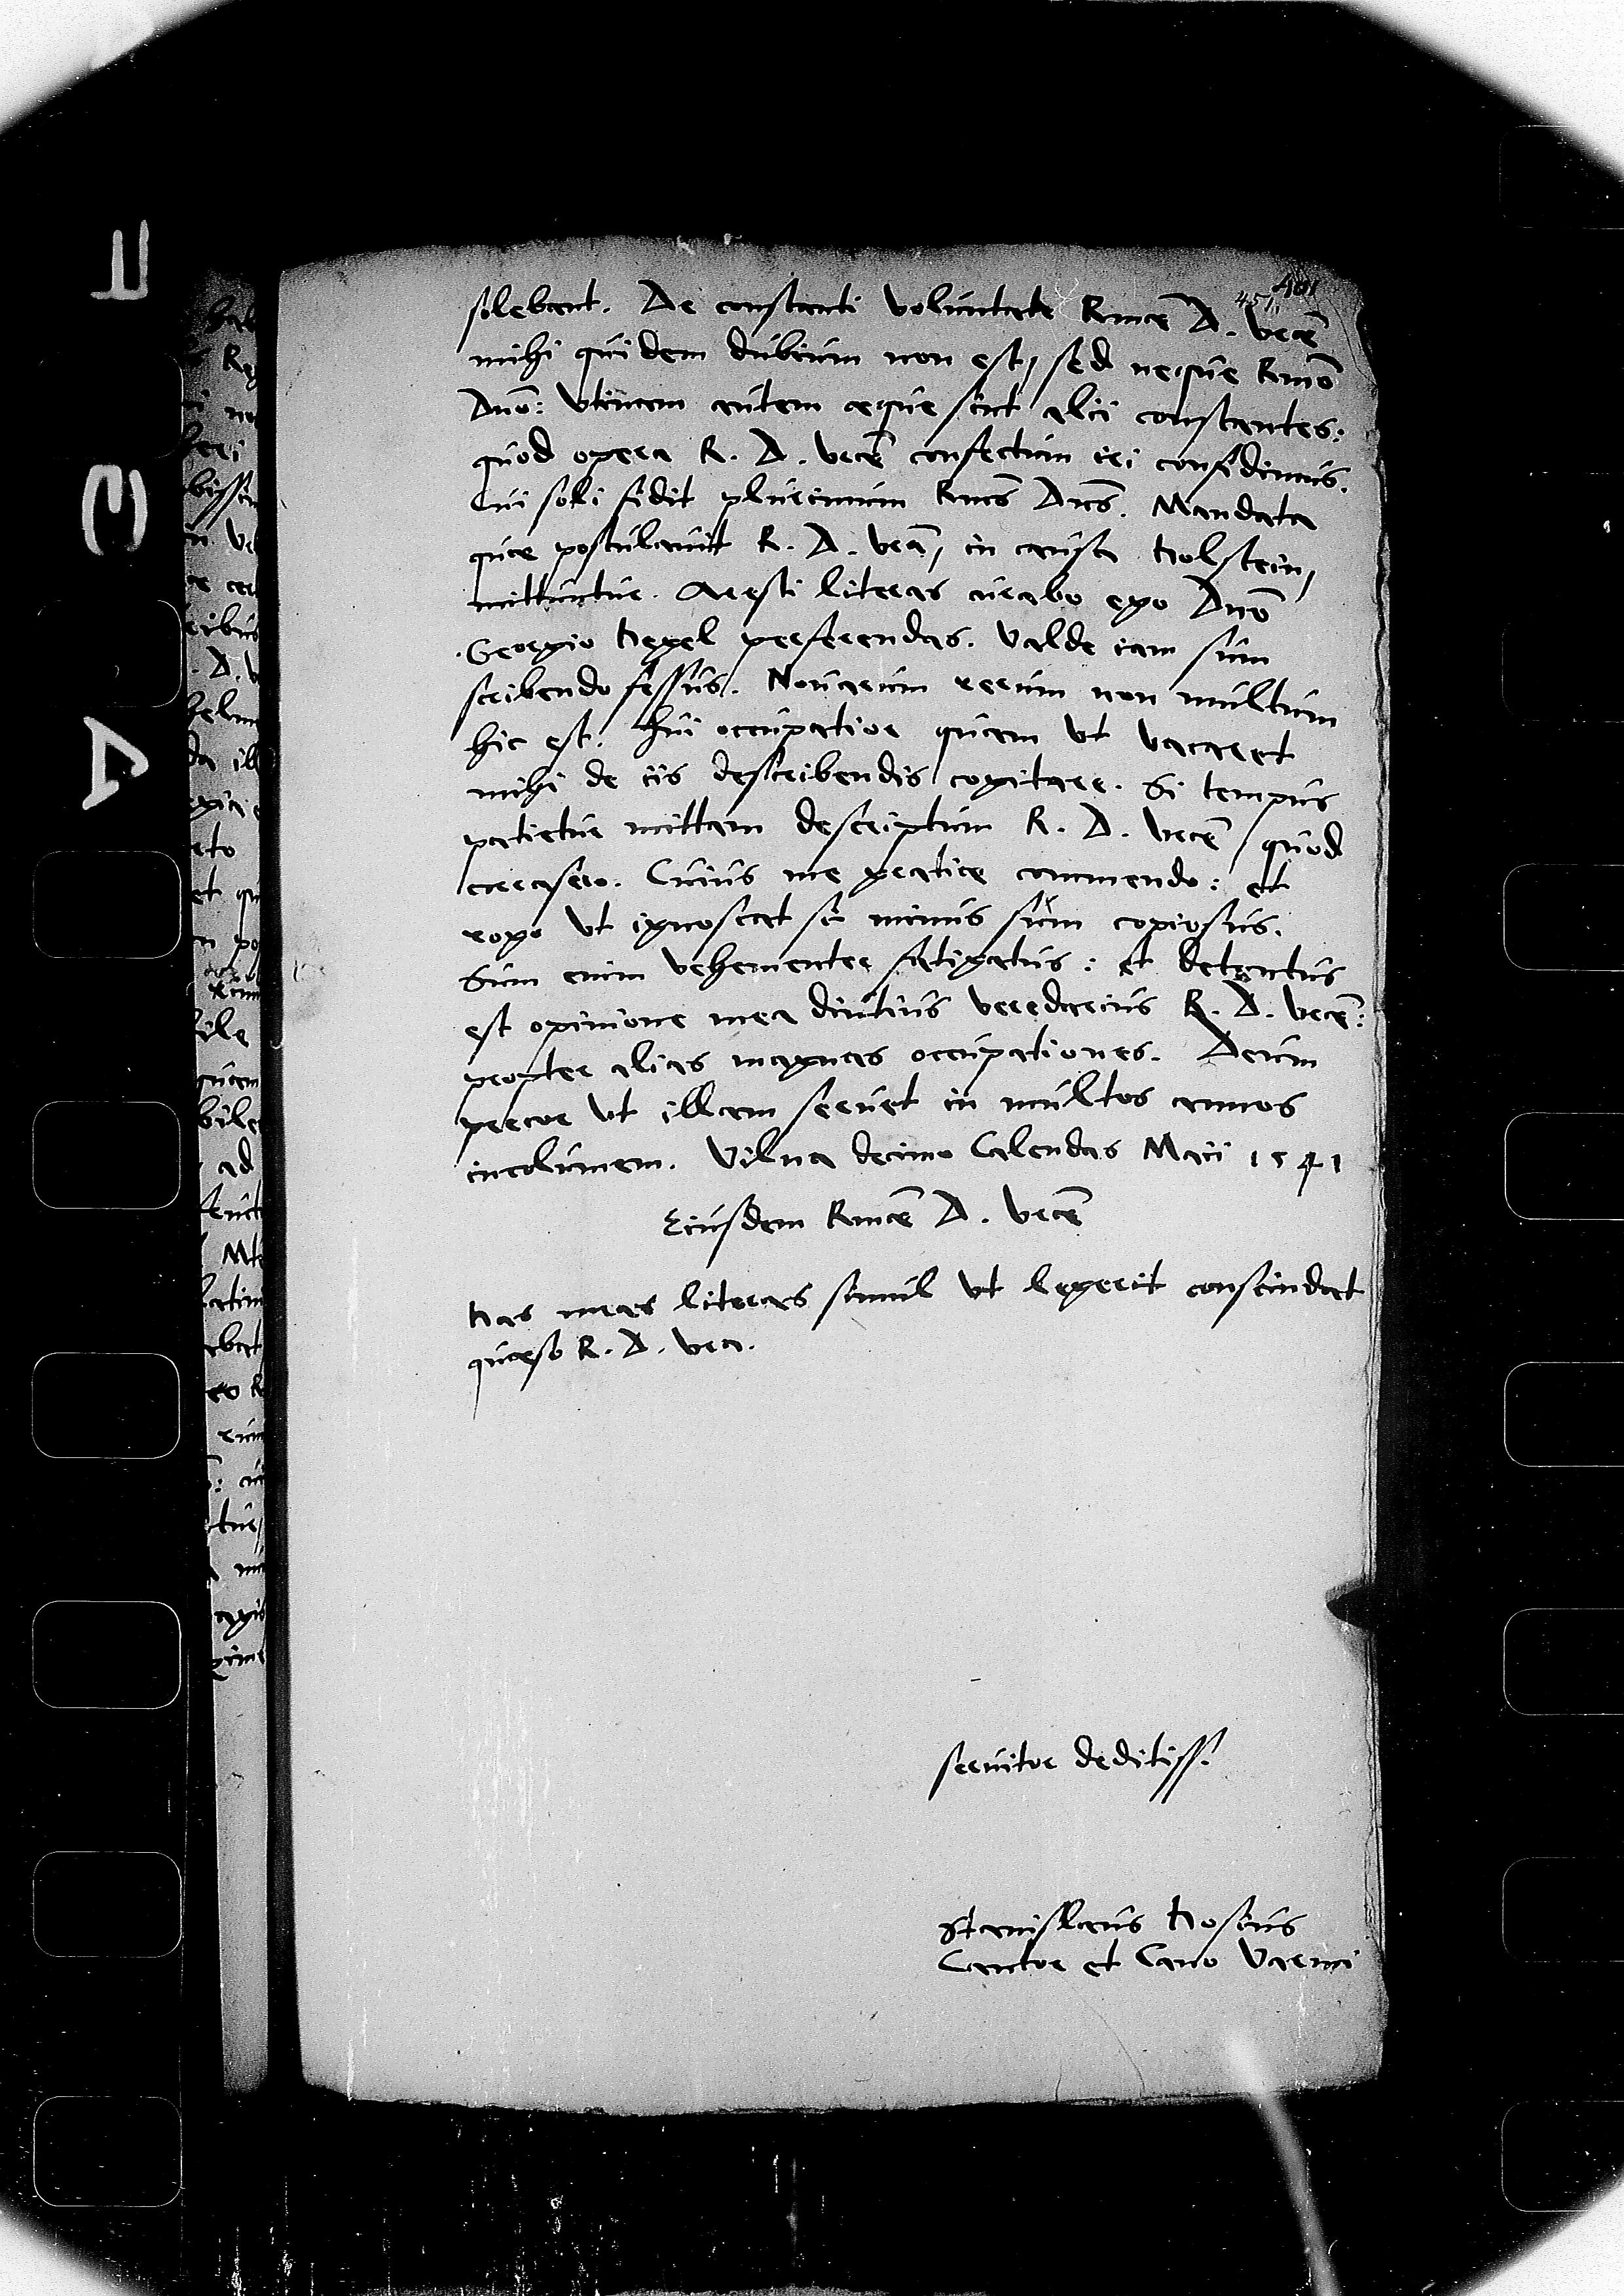 451
solebant. De constanti voluntate Rmae D. vrae
mihi quidem dubium non est, sed neque Rmo
Dno: Utinam autem aeque sint alii constantes:
quod opera R. D. vrae confectum iri confidimus.
Cui soli fidit plurimum Rmus Dnus. Mandata
quae postulavit R. D. vra, in causa Holstein,
mittuntur. Aresti literas curabo ego Dno
Georgio Hegel perferendas. Valde iam sum
scribendo fessus. Novarum rerum non multum
hic est. Fui occupatior quam ut vacaret
mihi de iis describendis cogitare. Si tempus
patietur mittam descriptum R. D. vrae, quod
Cuius me gratiae commendo: et
rogo ut ignoscat si minus sum copiosus.
Sum enim vehementer fatigatus: et detentus
est opinione mea diutius veredarius R. D. vrae:
propter alias magnas occupationes. Deum
precor ut illam servet in multos annos
incolumem. Vilna decimo Calendas Maii 1541
Eiusdem Rmae D. vrae
Has meas literas simul ut legerit conscindat
quaeso R. D. vra.
servitor deditiss.
Stanislaus Hosius
Cantor et Cano Varmi